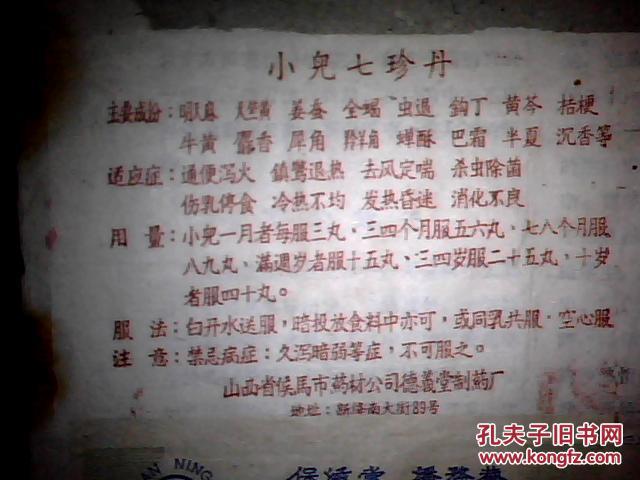 小兒七珍丹
主要成份：明天麻 天竺黄 姜蚕 全蝎 虫退 鈎丁 黄芩 桔梗
牛黄 麝香 犀角 羚羊角 蟬酥 巴霜 半夏 沉香等
适应症：通便泻火 鎮驚退热 去风定喘 杀虫除菌
伤乳停食 冷热不均 发热昏迷 消化不良
用量：小兒一月者每服三丸、三四个月服五六丸、七八个月服
八九丸、滿週岁者服十五丸、三四岁服二十五丸，十岁
者服四十丸。
服法：白开水送服，暗投放食料中亦可，或同乳共服·空心服
注意：禁忌病症：久泻暗弱等症，不可服之。
山西省侯馬市药材公司德義堂制药厂
地址：新绛南大街89号
AN NING
孔夫子旧书网
www.kongfz.com